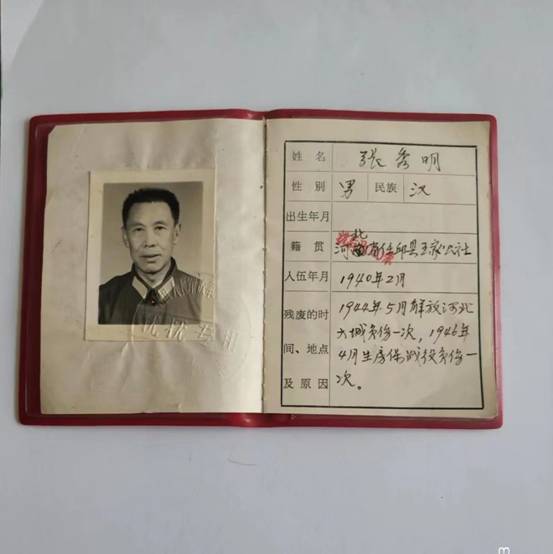 姓名 张秀明
性别 男 民族 汉
出生年月
籍贯 河北省任邱县王家公社
入伍年月 1940年2月
残废的时间、地点及原因
1944年5月解放河北
大城负伤一次,1946年
4月生
战役负伤一
次。